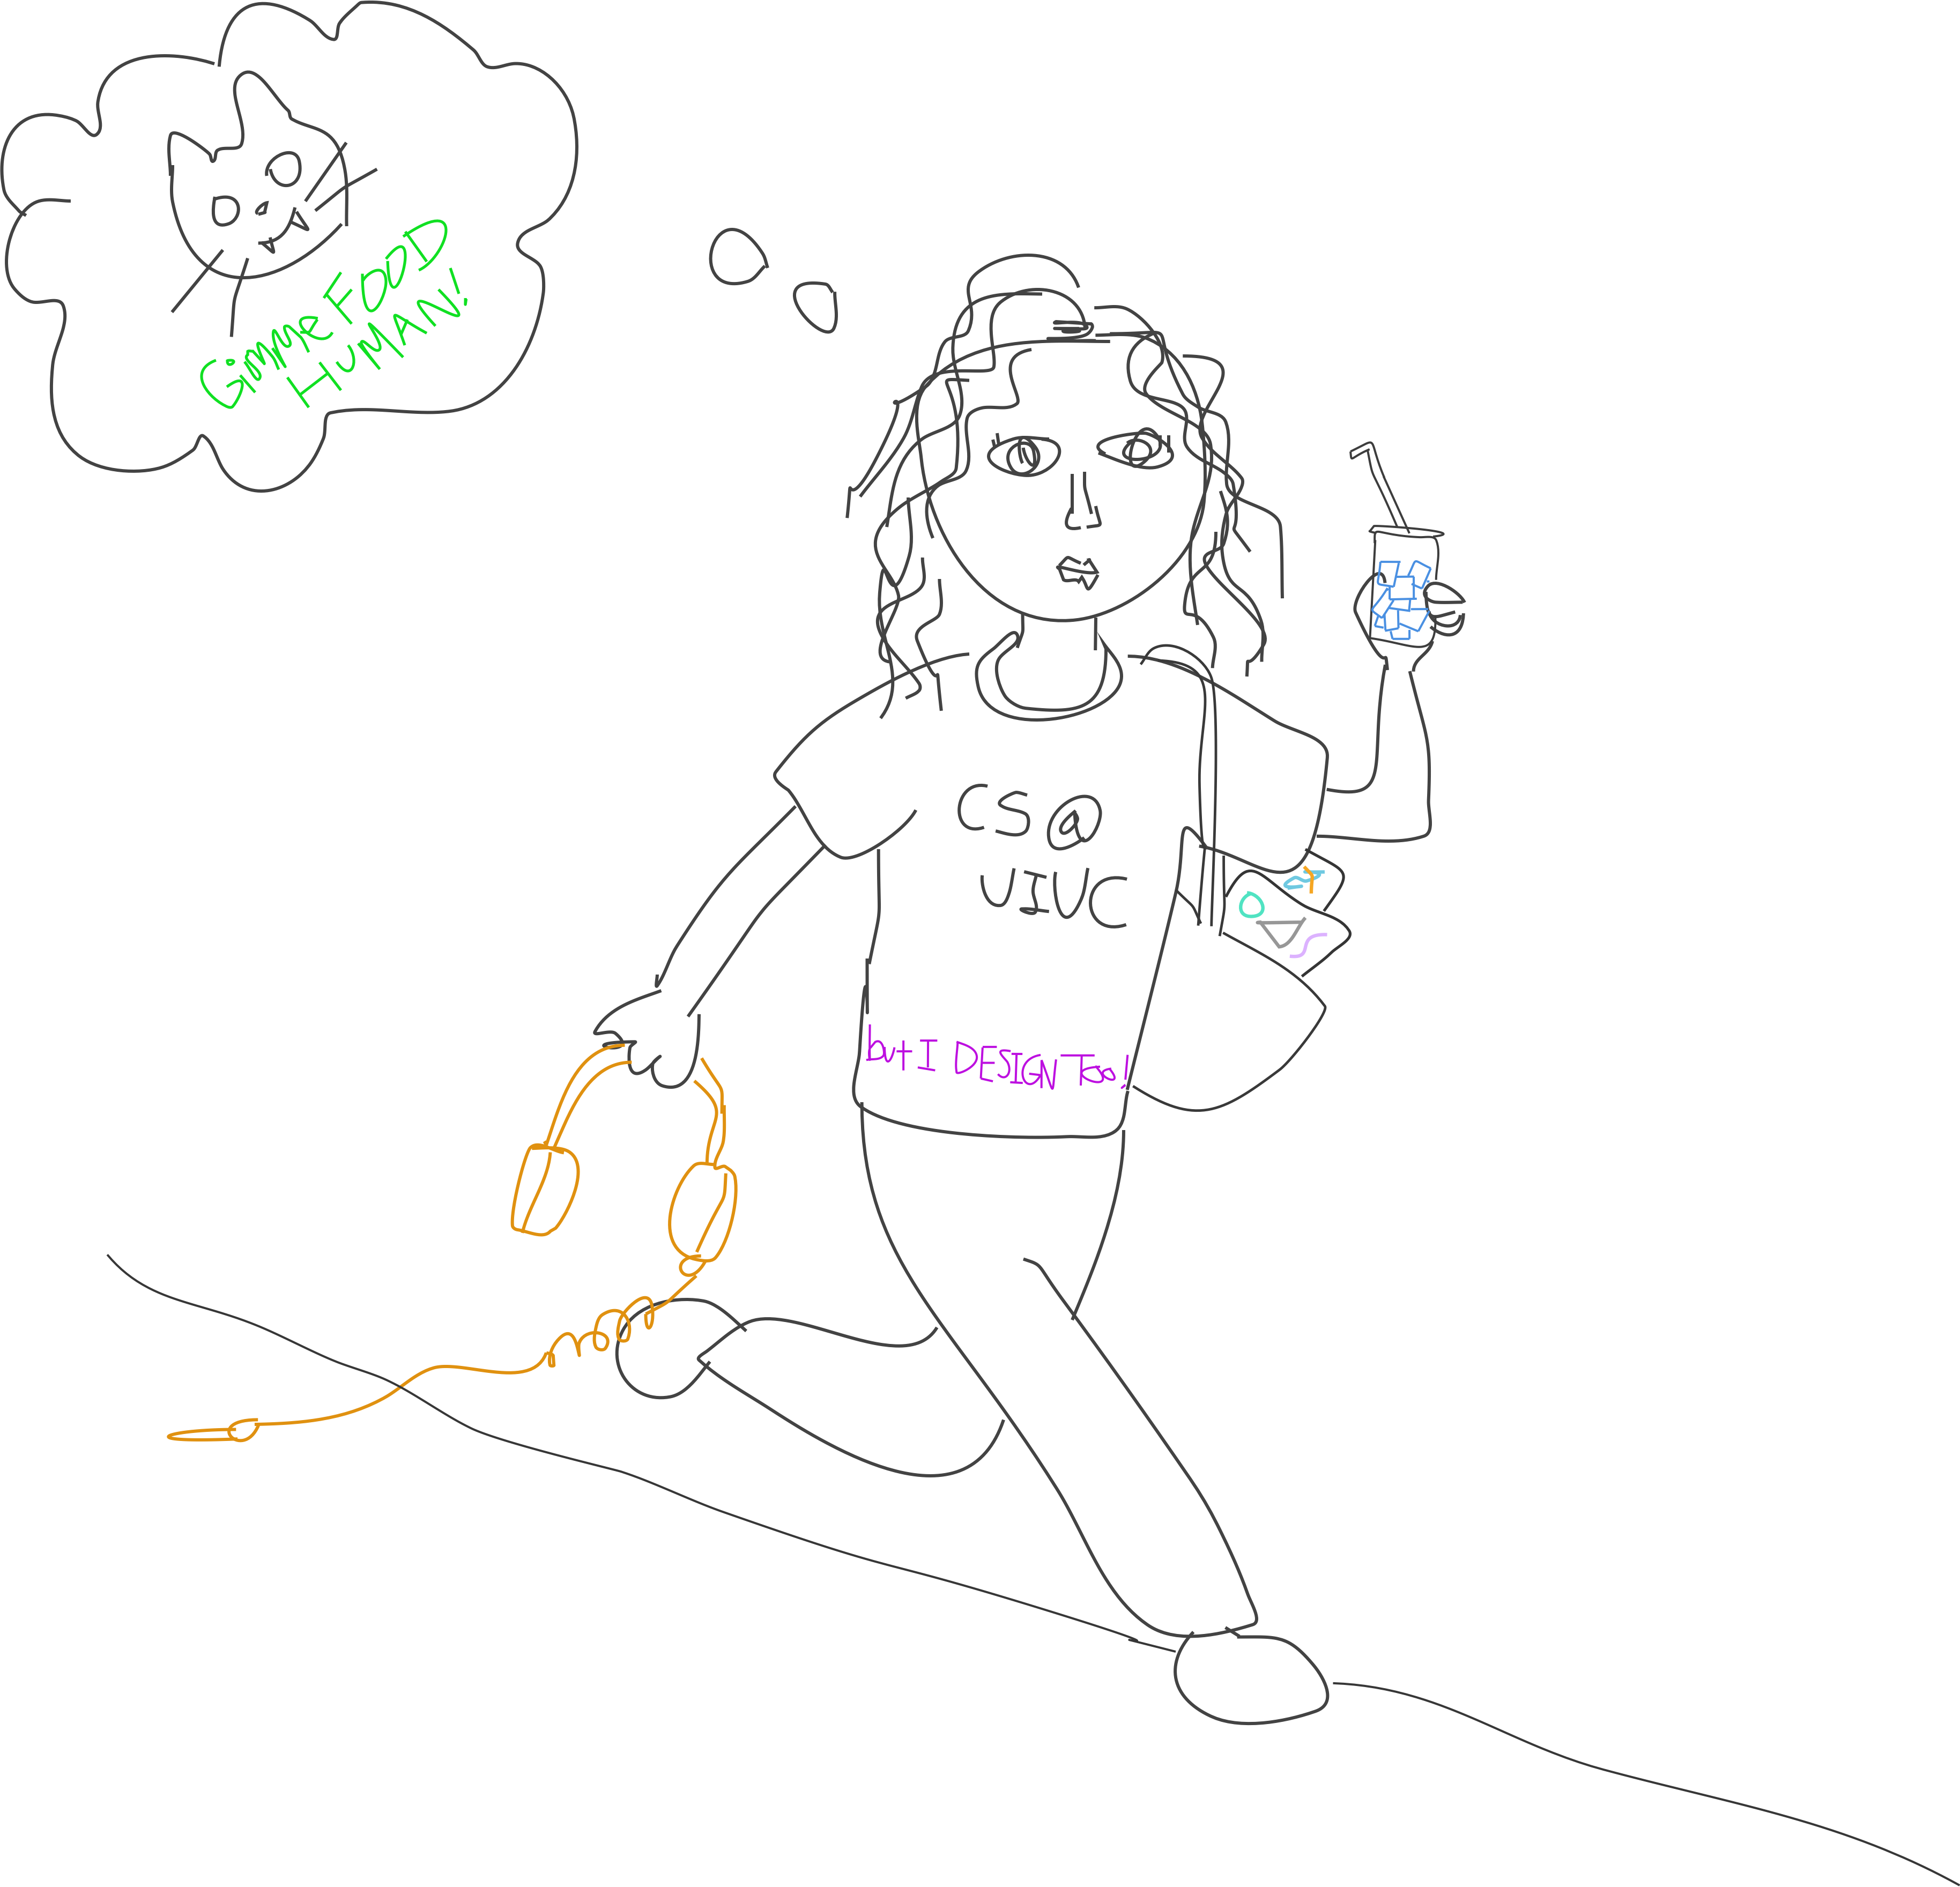 Gimme FOOD
HUMAN!
CS@
UIUC
but I DESIGN Too!